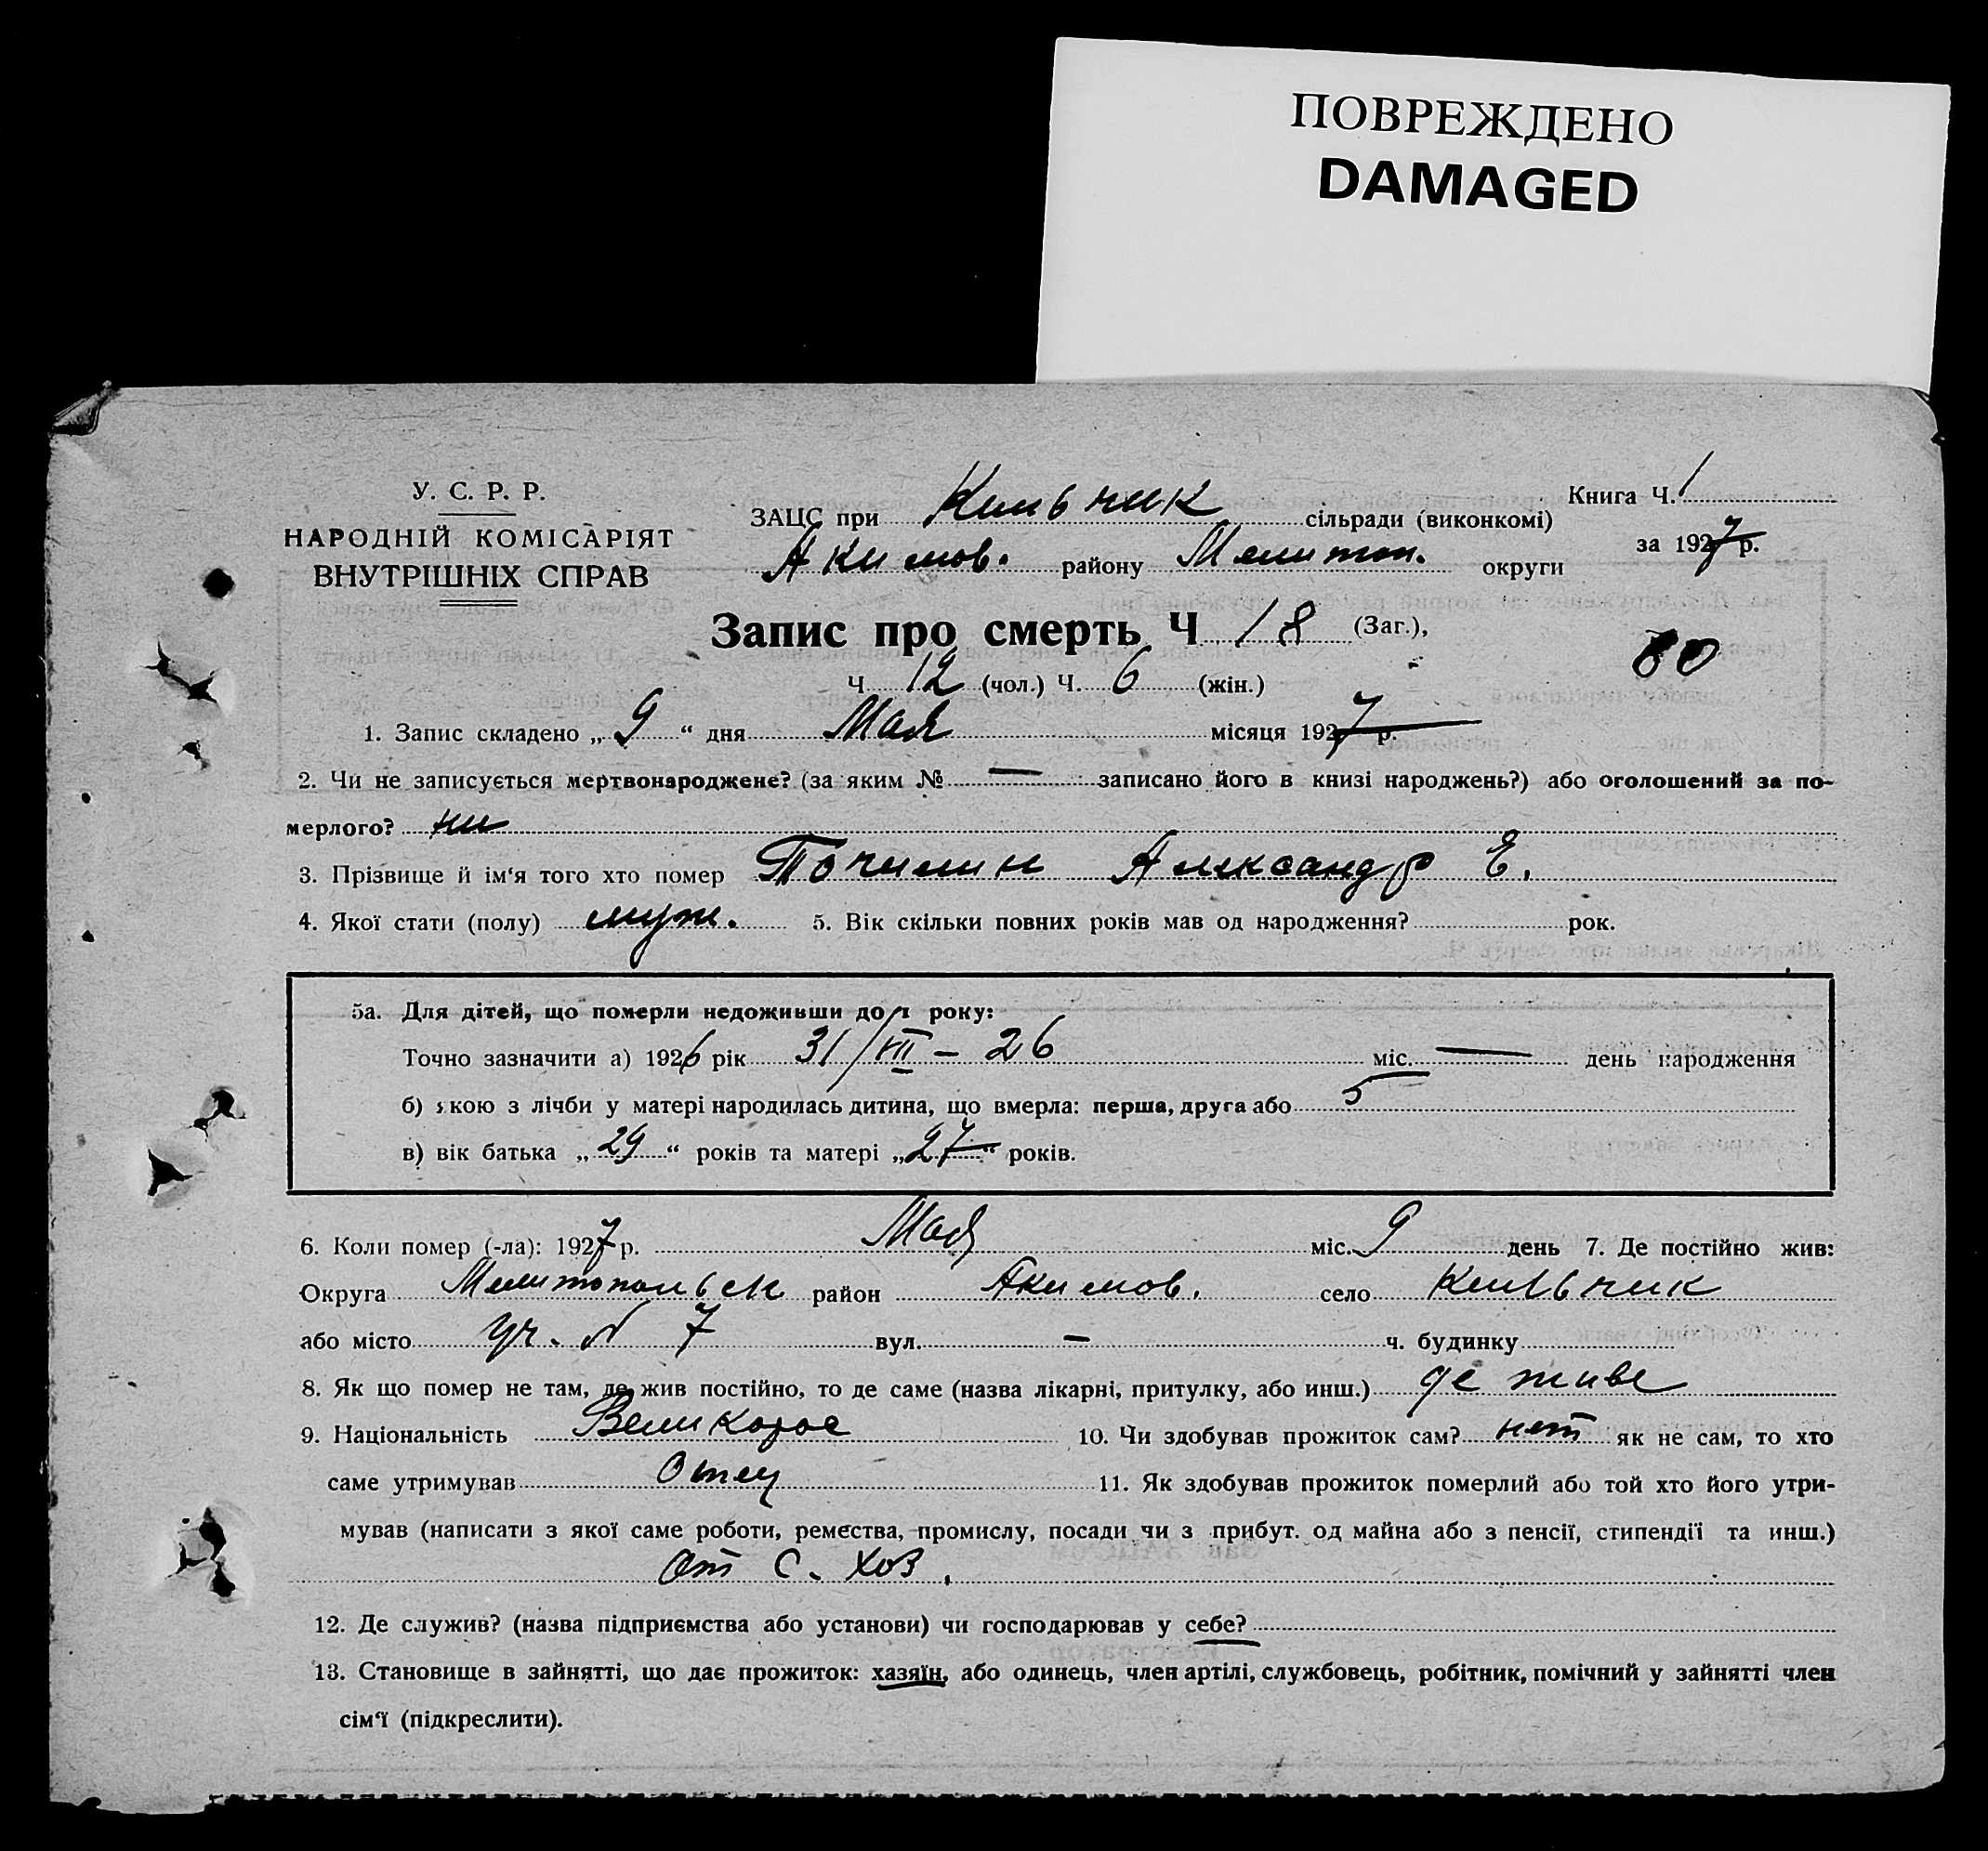 ПОВРЕЖДЕНО
DAMAGED
У. С. Р. Р.
НАРОДНІЙ КОМІСАРІЯТ
ВНУТРІШНІХ СПРАВ
Книга Ч. 1
ЗАЦС при Кильчик сільради (виконкомі)
за 1927 р.
Акимов. району Мелитоп. округи
Запис про смерть Ч 18 (Заг.),
80
Ч. 12 (чол.) Ч. 6 (жін.)
1. Запис складено „ 9 “ дня Мая місяця 1927 р.
2. Чи не записується мертвонароджене? (за яким № — записано його в книзі народжень?) або оголошений за по-
мерлого? ни
3. Прізвище й ім‘я того хто помер Точилин Александр Е.
4. Якої стати (полу) муж. 5. Вік скільки повних років мав од народження? рок.
5а. Для дітей, що померли недоживши до 1 року:
Точно зазначити а) 1926 рік 31/VII – 26 міс. — день народження
б) якою з лічби у матері народилась дитина, що вмерла: перша, друга або 5
в) вік батька „ 29 “ років та матері „ 27 “ років.
6. Коли помер (-ла): 1927 р. Мая міс. 9 день 7. Де постійно жив:
Округа Мелитопольск район Акимов. село Кильчик
або місто уч. N 7 вул. — ч. будинку
8. Як що помер не там, де жив постійно, то де саме (назва лікарні, притулку, або инш.) де живе
9. Національність Великорос 10. Чи здобував прожиток сам? нет як не сам, то хто
саме утримував Отец 11. Як здобував прожиток померлий або той хто його утри-
мував (написати з якої саме роботи, ремества, промислу, посади чи з прибут. од майна або з пенсії, стипендії та инш.)
От с. хоз.
12. Де служив? (назва підприємства або установи) чи господарював у себе?
13. Становище в зайнятті, що дає прожиток: хазяїн, або одинець, член артілі, службовець, робітник, помічний у зайнятті член
сім‘ї (підкреслити).